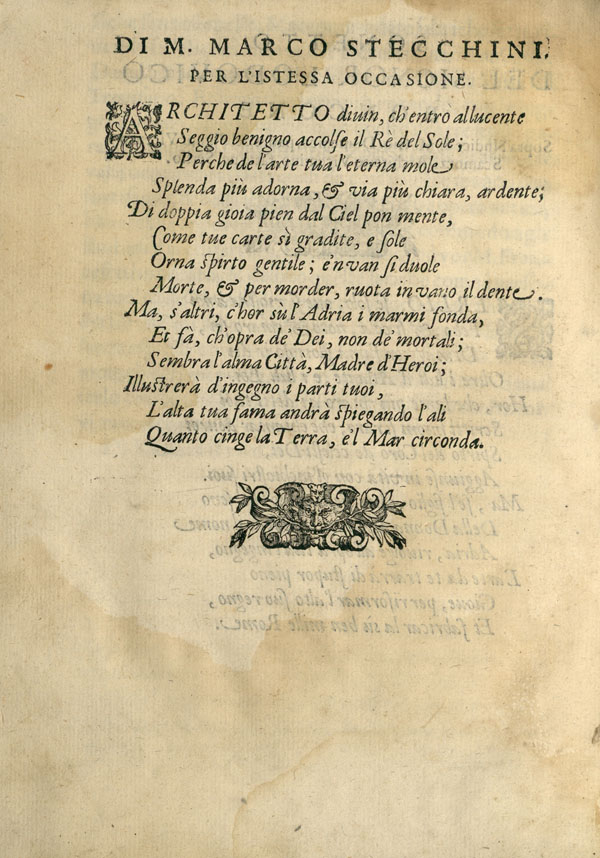 DI M. MARCO STECCHINI.
PER L'ISTESSA OCCASIONE.
ARCHITETTO diuin, ch'entro al lucente
Seggio benigno accolse il Rè del Sole;
Perche de l'arte tua l'eterna mole
Splenda più adorna, & via più chiara, ardente;
Di doppia gioia pien dal Ciel pon mente,
Come tue carte sì gradite, e sole
Orna spirto gentile; e'n van si duole
Morte, & per morder, ruota in vano il dente.
Ma, s'altri, c'hor sù l'Adria i marmi fonda,
Et fà, ch'opra de' Dei, non de' mortali;
Sembra l'alma Città, Madre d'Heroi;
Illustrerà d'ingegno i parti tuoi,
L'alta tua fama andrà spiegando l'ali
Quanto cinge la Terra, e'l Mar circonda.